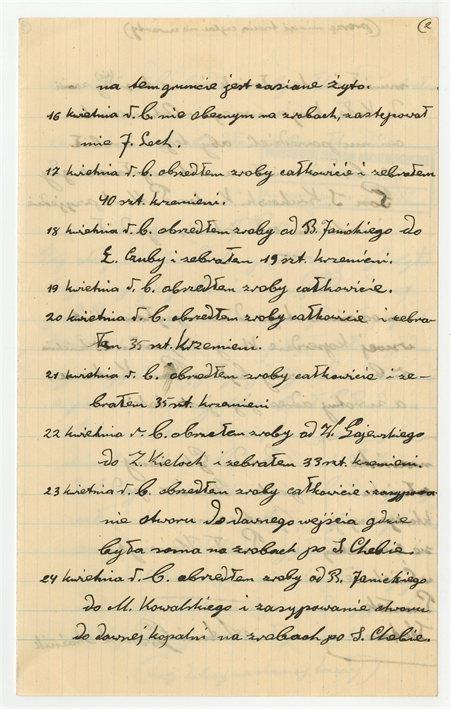 (2
na tem gruncie jest zasiane żyto.
16 kwietnia d. b. nie obecnym na zrobach, zastępował
mie J. Lech.
17 kwietnia d. b. obszedłem zroby całkowicie i zebrałem
40 szt. krzemieni.
18 kwietnia d. b. obszedłem zroby od R. Janickiego do
E. Czuby i zebrałem 19 szt. krzemieni.
19 kwietnia d. b. obszedłem zroby całkowicie.
20 kwietnia d. b. obszedłem zroby całkowicie i zebra-
łem 35 szt. krzemieni.
21 kwietnia d. b. obszedłem zroby całkowicie i ze-
brałem 35 szt. krzemieni
22 kwietnia d. b. obszełem zroby od Gajewskiego
do Z. Kieloch i zebrałem 33 szt. krzemieni.
23 kwietnia d. b. obszedłem zroby całkowicie i zasypowa
nie otworu do dawnego wejścia gdzie
była soma na zrobach po S. Chebie.
24 kwietnia d. b. obszedłem zroby od R. Janickiego
do M. Kowalskiego i zasypowanie otworu
do dawnej kopalni na zrobach po S. Chebie